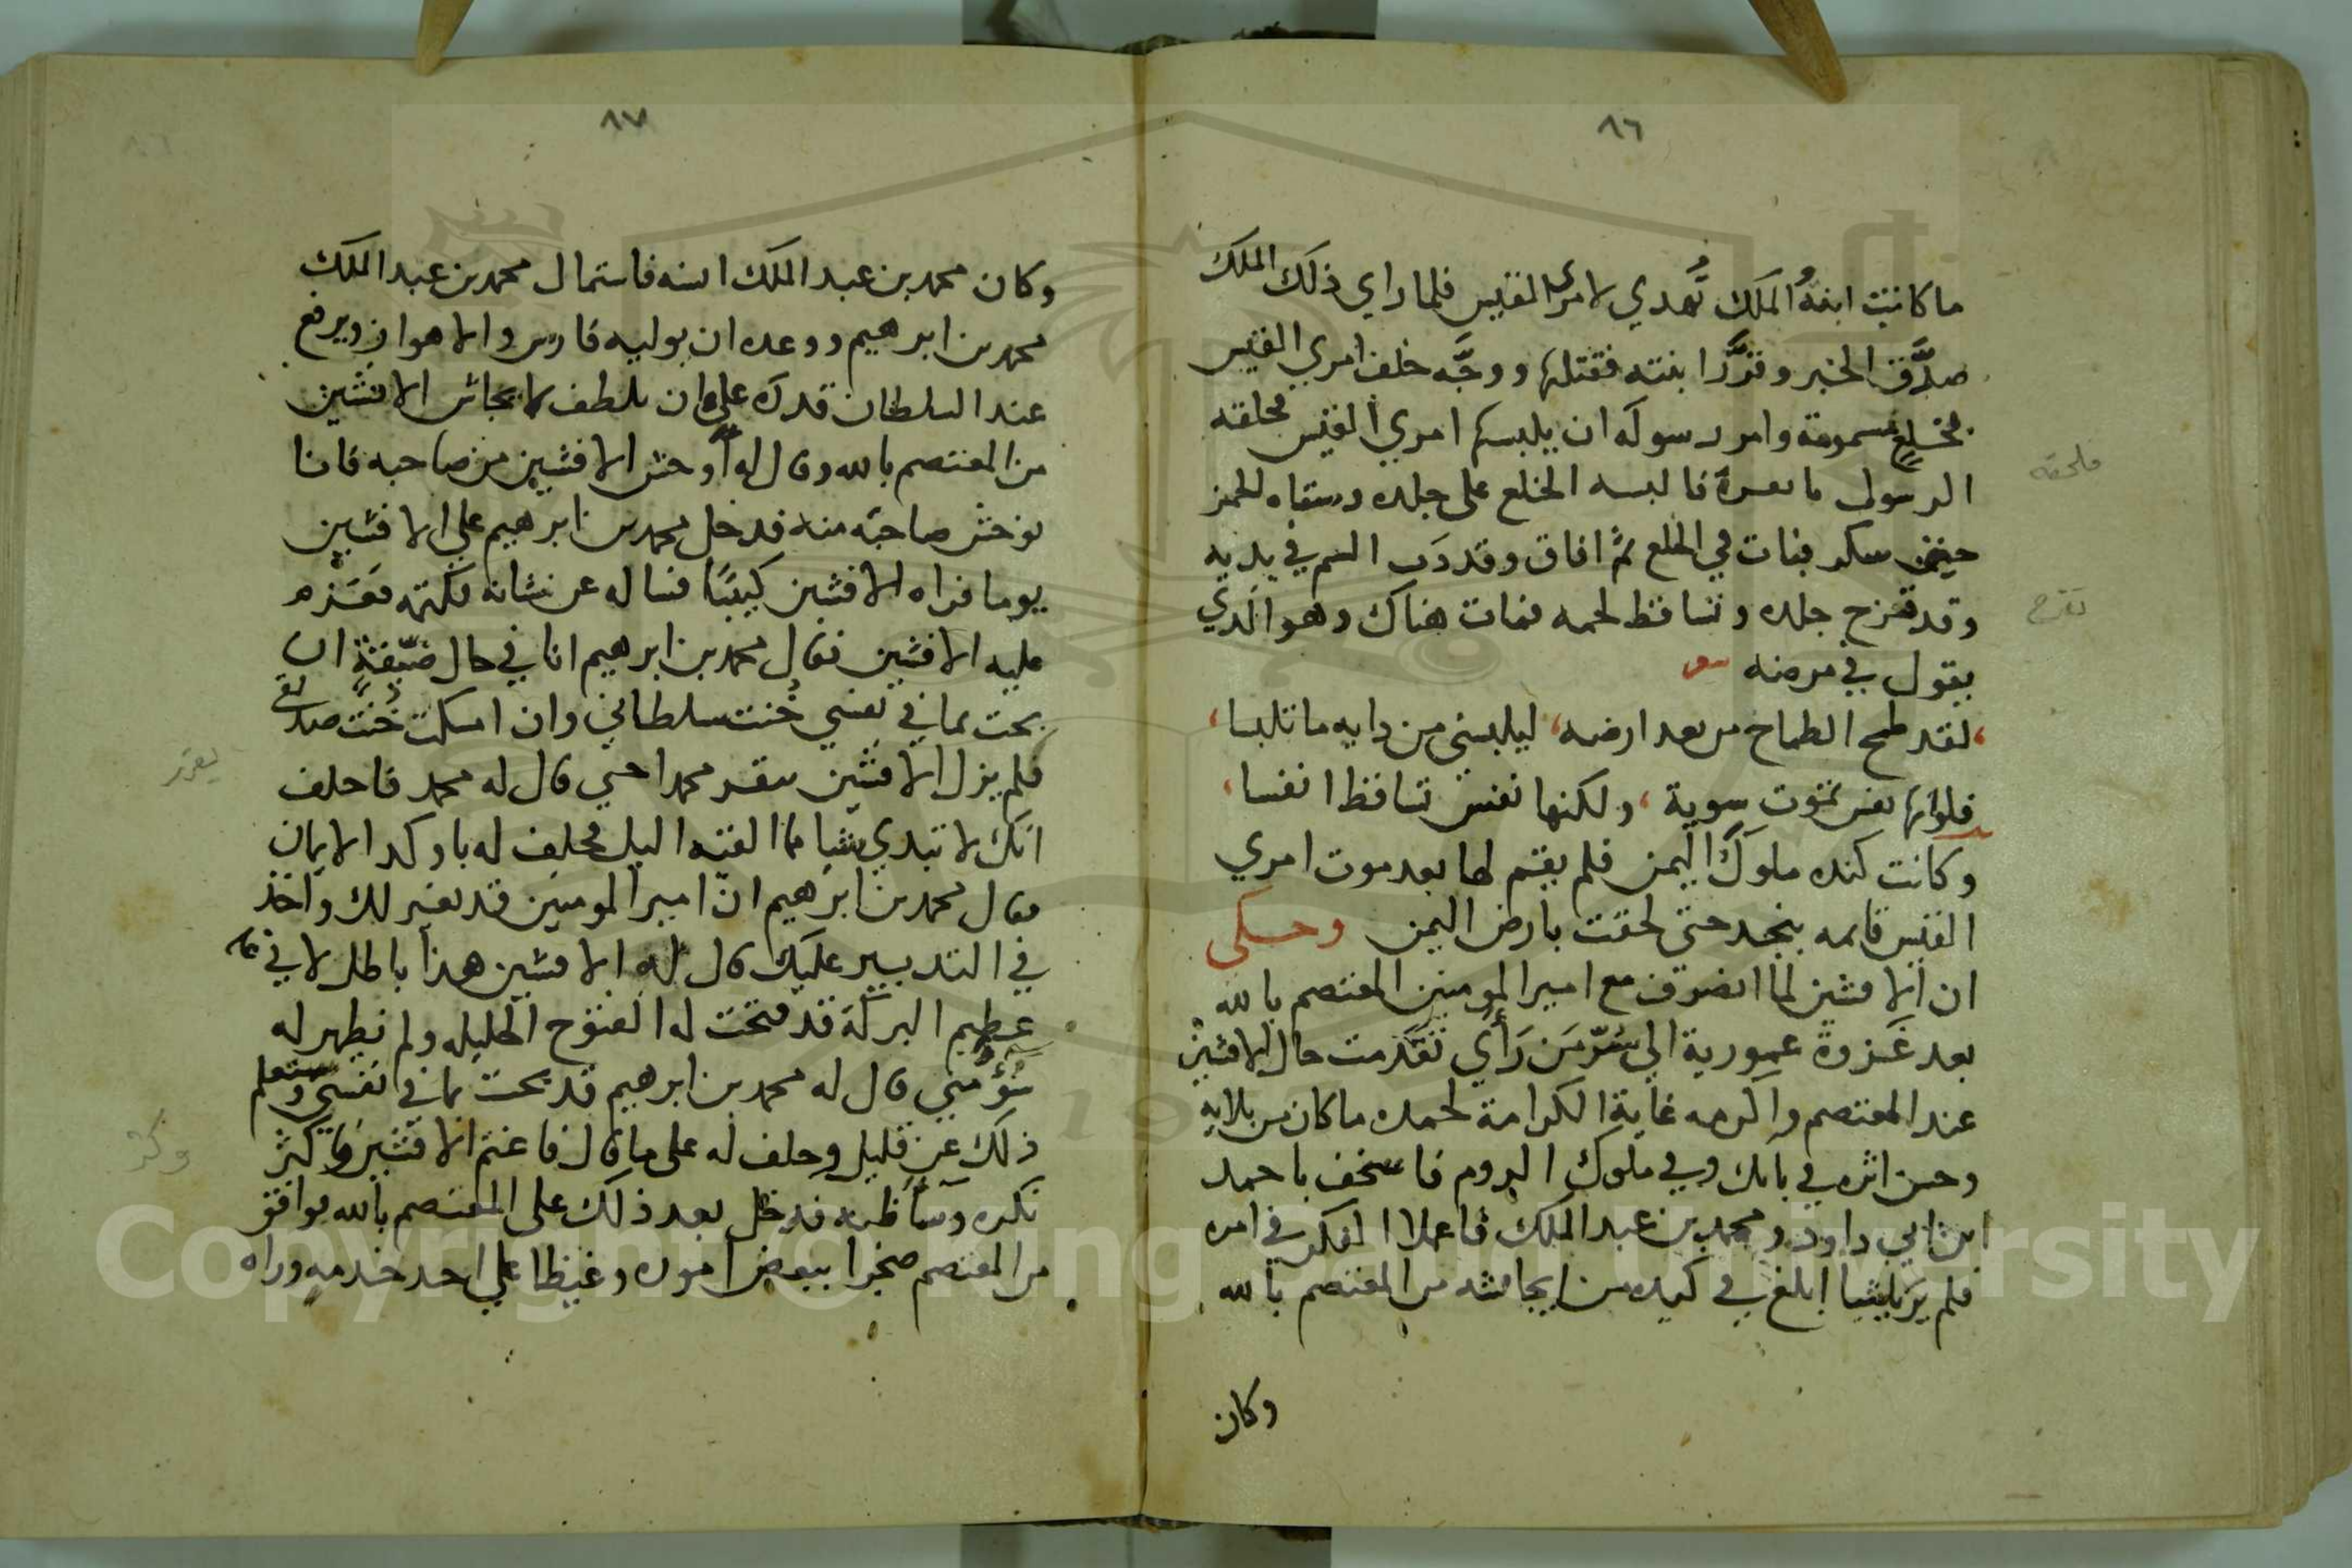 ٨٦
ما كانت ابنةُ الملك تُهدي لامرئ القيس فلما راي ذلك الملك
صدَّق الخبر وقرَّر ابنته فقتلها ووجَّه خلف امري القيس
بخلع مسمومة وامر رسوله ان يلبسها امري القيس فحلقه
الرسول فالبسه الخلع على جلده وسقاه الخمر
سكر فبات في الخلع ثم افاق وقد دَب السم في بدنه
وقد تقرح جلده وتساقط لحمه فمات هناك وهو الذي
يقول في مرضه
لقد طمح الطماح من بعد ارضه، ليلبسني من دايه ما تلبسا،
فلو انها نفس تموت سوية، ولكنها نفس تساقط انفسا،
وكانت كنده ملوك اليمن فلم يقم لها بعد موت امري
القيس قايمه بنجد حتى لحقت بارض اليمن وحكى
ان الافشين لما انصرف مع امير المومنين المعتصم بالله
بعد غَزوة عمورية الي سُرّ مَن رَأي تقدمت حال الافشين
عند المعتصم واكرمه غاية الكرامة لحمده ما كان من بلايه
وحسن اثره في بابك وفي ملوك الروم فاستخف باحمد
ابن ابي داود ومحمد بن عبد الملك فاعملا الفكر في امره
فلم يريا شيا ابلغ في كيده من ايحاشه من المعتصم بالله
وكان
ملحقه
تقرح
٨٧
وكان محمد بن عبد الملك فاستمال محمد بن عبد الملك
محمد بن ابرهيم ووعده ان يوليه فارس والاهواز ويرفع
عند السلطان قدره على ان يلطف لايحاش الافشين
من المعتصم بالله وقال له أوحش الافشين من صاحبه فانا
نوحش صاحبه منه فدخل محمد بن ابرهيم علي الافشين
يوما فراه الافشين كيبًا فساله عن شانه فكتمه فعَزم
عليه الافشين فقال محمد بن ابرهيم انا في حال ضيّقةٍ ان
بحت بما في نفسي خُنت سلطاني وان امسكت خُنت صديقي
فلم يزل الافشين محمدا حتي قال له محمد فاحلف
انك لا تبدي شيا مما القيته اليك فحلف له باوكد الايمان
فقال محمد بن ابرهيم ان امير المومنين قد تغير لك واخذ
في التدبير عليك قال له الافشين هذا باطل لاني
عظيم البركة قد فتحت له الفتوح الجليله ولم تظهر له
مني قال له محمد بن ابرهيم قد بحت بما في نفسي وستعلم
ذلك عن قليل وحلف له على ما قال فاغتم الافشين وكثر
فكره وسا ظنه فدخل بعد ذلك على المعتصم بالله فوافق
من المعتصم ضجرا ببعض اموره وغيظا علي احد خدمه وراه
يقرر
وكثر
Copyright © King Saud University